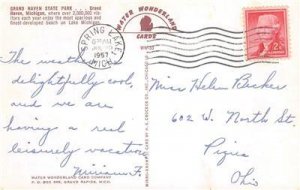 GRAND HAVEN STATE PARK . . . Grand
Haven, Michigan, where over 2,000,000 vis-
itors each year enjoy the most spacious and
finest developed beach on Lake Michigan.
WATER WONDERLAND
CARDS
SPRING LAKE
1957
MICH.
2¢
The weather
delightfully cool,
and we are
having a real
leisurely vacation
Miriam F.
Miss Helen Becker
602 W. North St.
Piqua
Ohio
WATER WONDERLAND CARD COMPANY
GRAND RAPIDS, MICH.